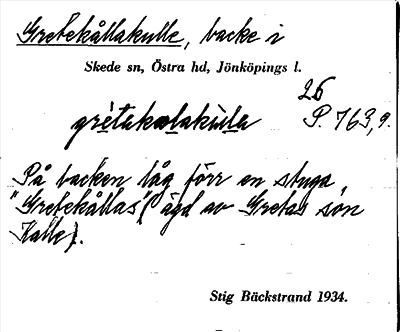 Gretekållakulle, backe i
Skede sn, Östra hd, Jönköpings l.
26
gretakolakulla P. 763, 9.
På backen låg förr en stuga,
"Gretekållas" (ägd av Gretas son
Kalle).
Stig Bäckstrand 1934.